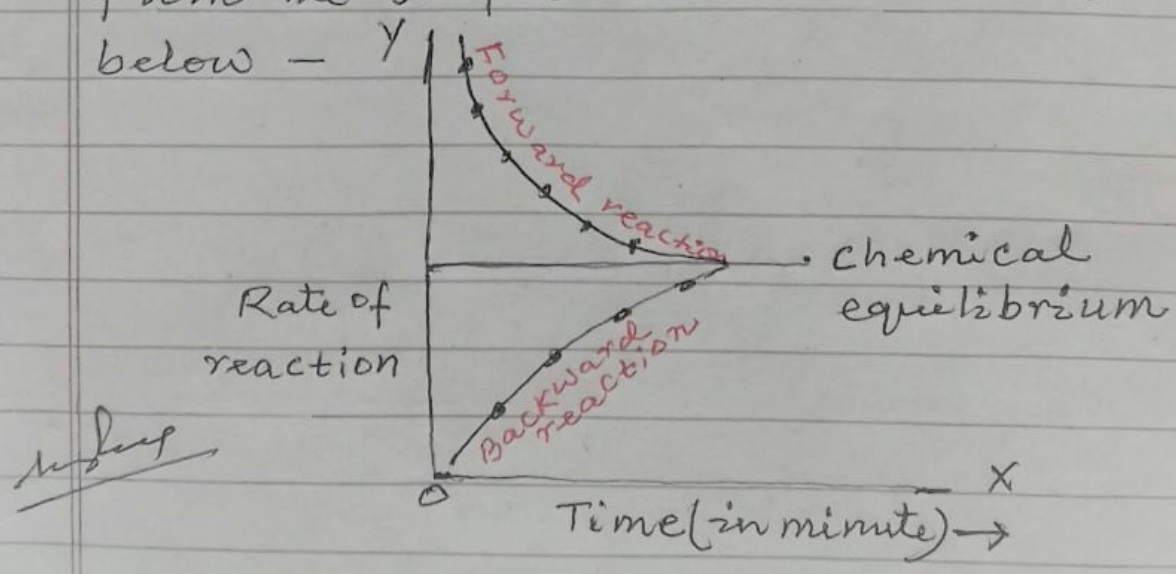 below - Y
Forward reaction
chemical
equilibrium
Rate of
reaction
Backward
reaction
O
X
Time (in minute) →